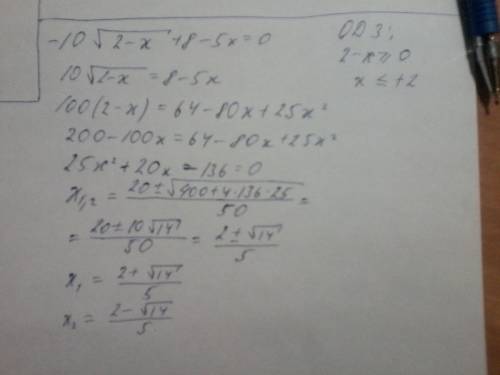 -10√(2-x) +8-5x=0
ОДЗ:
2-x≥0
x≤+2
10√(2-x) = 8-5x
100(2-x) = 64-80x+25x²
200-100x=64-80x+25x²
25x²+20x-136=0
x₁,₂ = (20±√(400+4·136·25))/50 =
= (20±10√14)/50 = (2±√14)/5
x₁ = (2+√14)/5
x₂ = (2-√14)/5